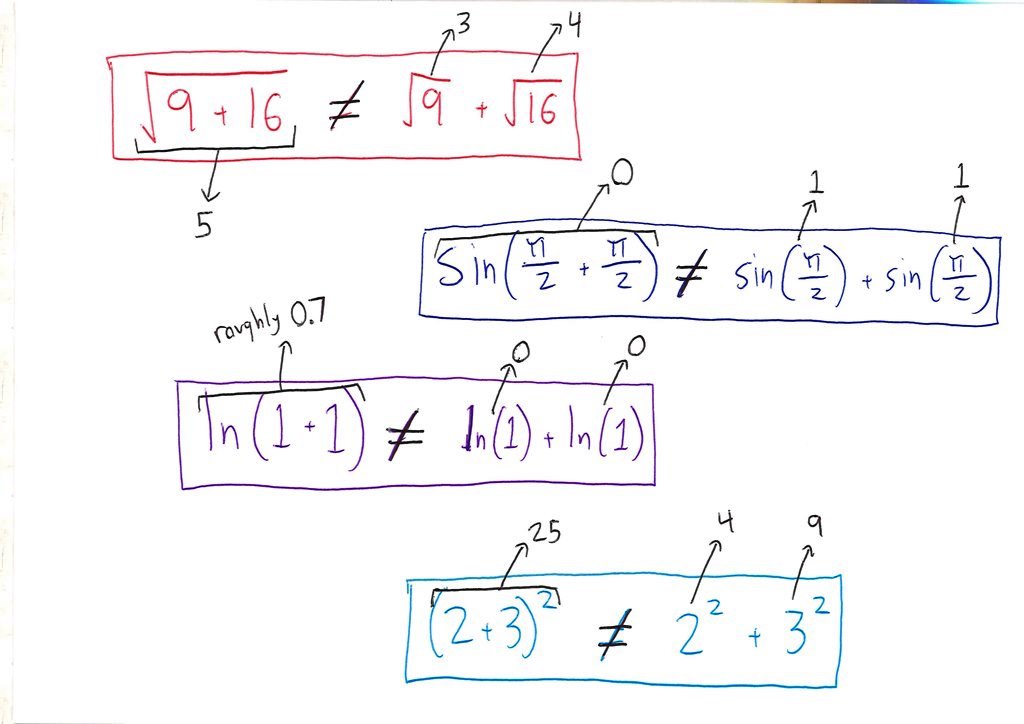 3 4
√(9 + 16) ≠ √9 + √16
5
0 1 1
Sin(π/2 + π/2) ≠ sin(π/2) + sin(π/2)
roughly 0.7 0 0
ln(1 + 1) ≠ ln(1) + ln(1)
25 4 9
(2 + 3)² ≠ 2² + 3²